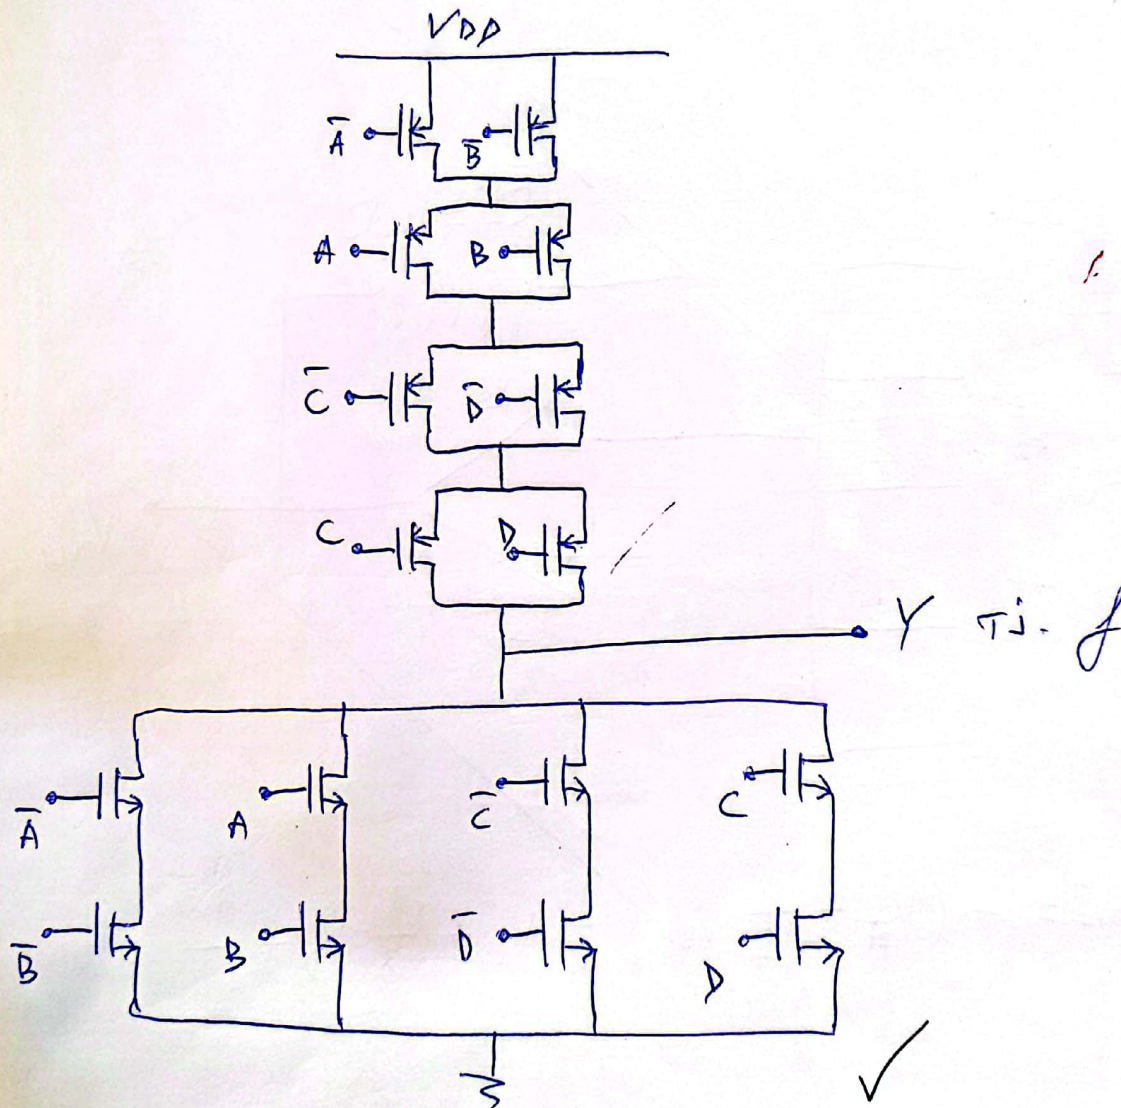 VDD
A̅ B̅
A B
C̅ D̅
C D
Y
A̅ A C̅ C
B̅ B D̅ D